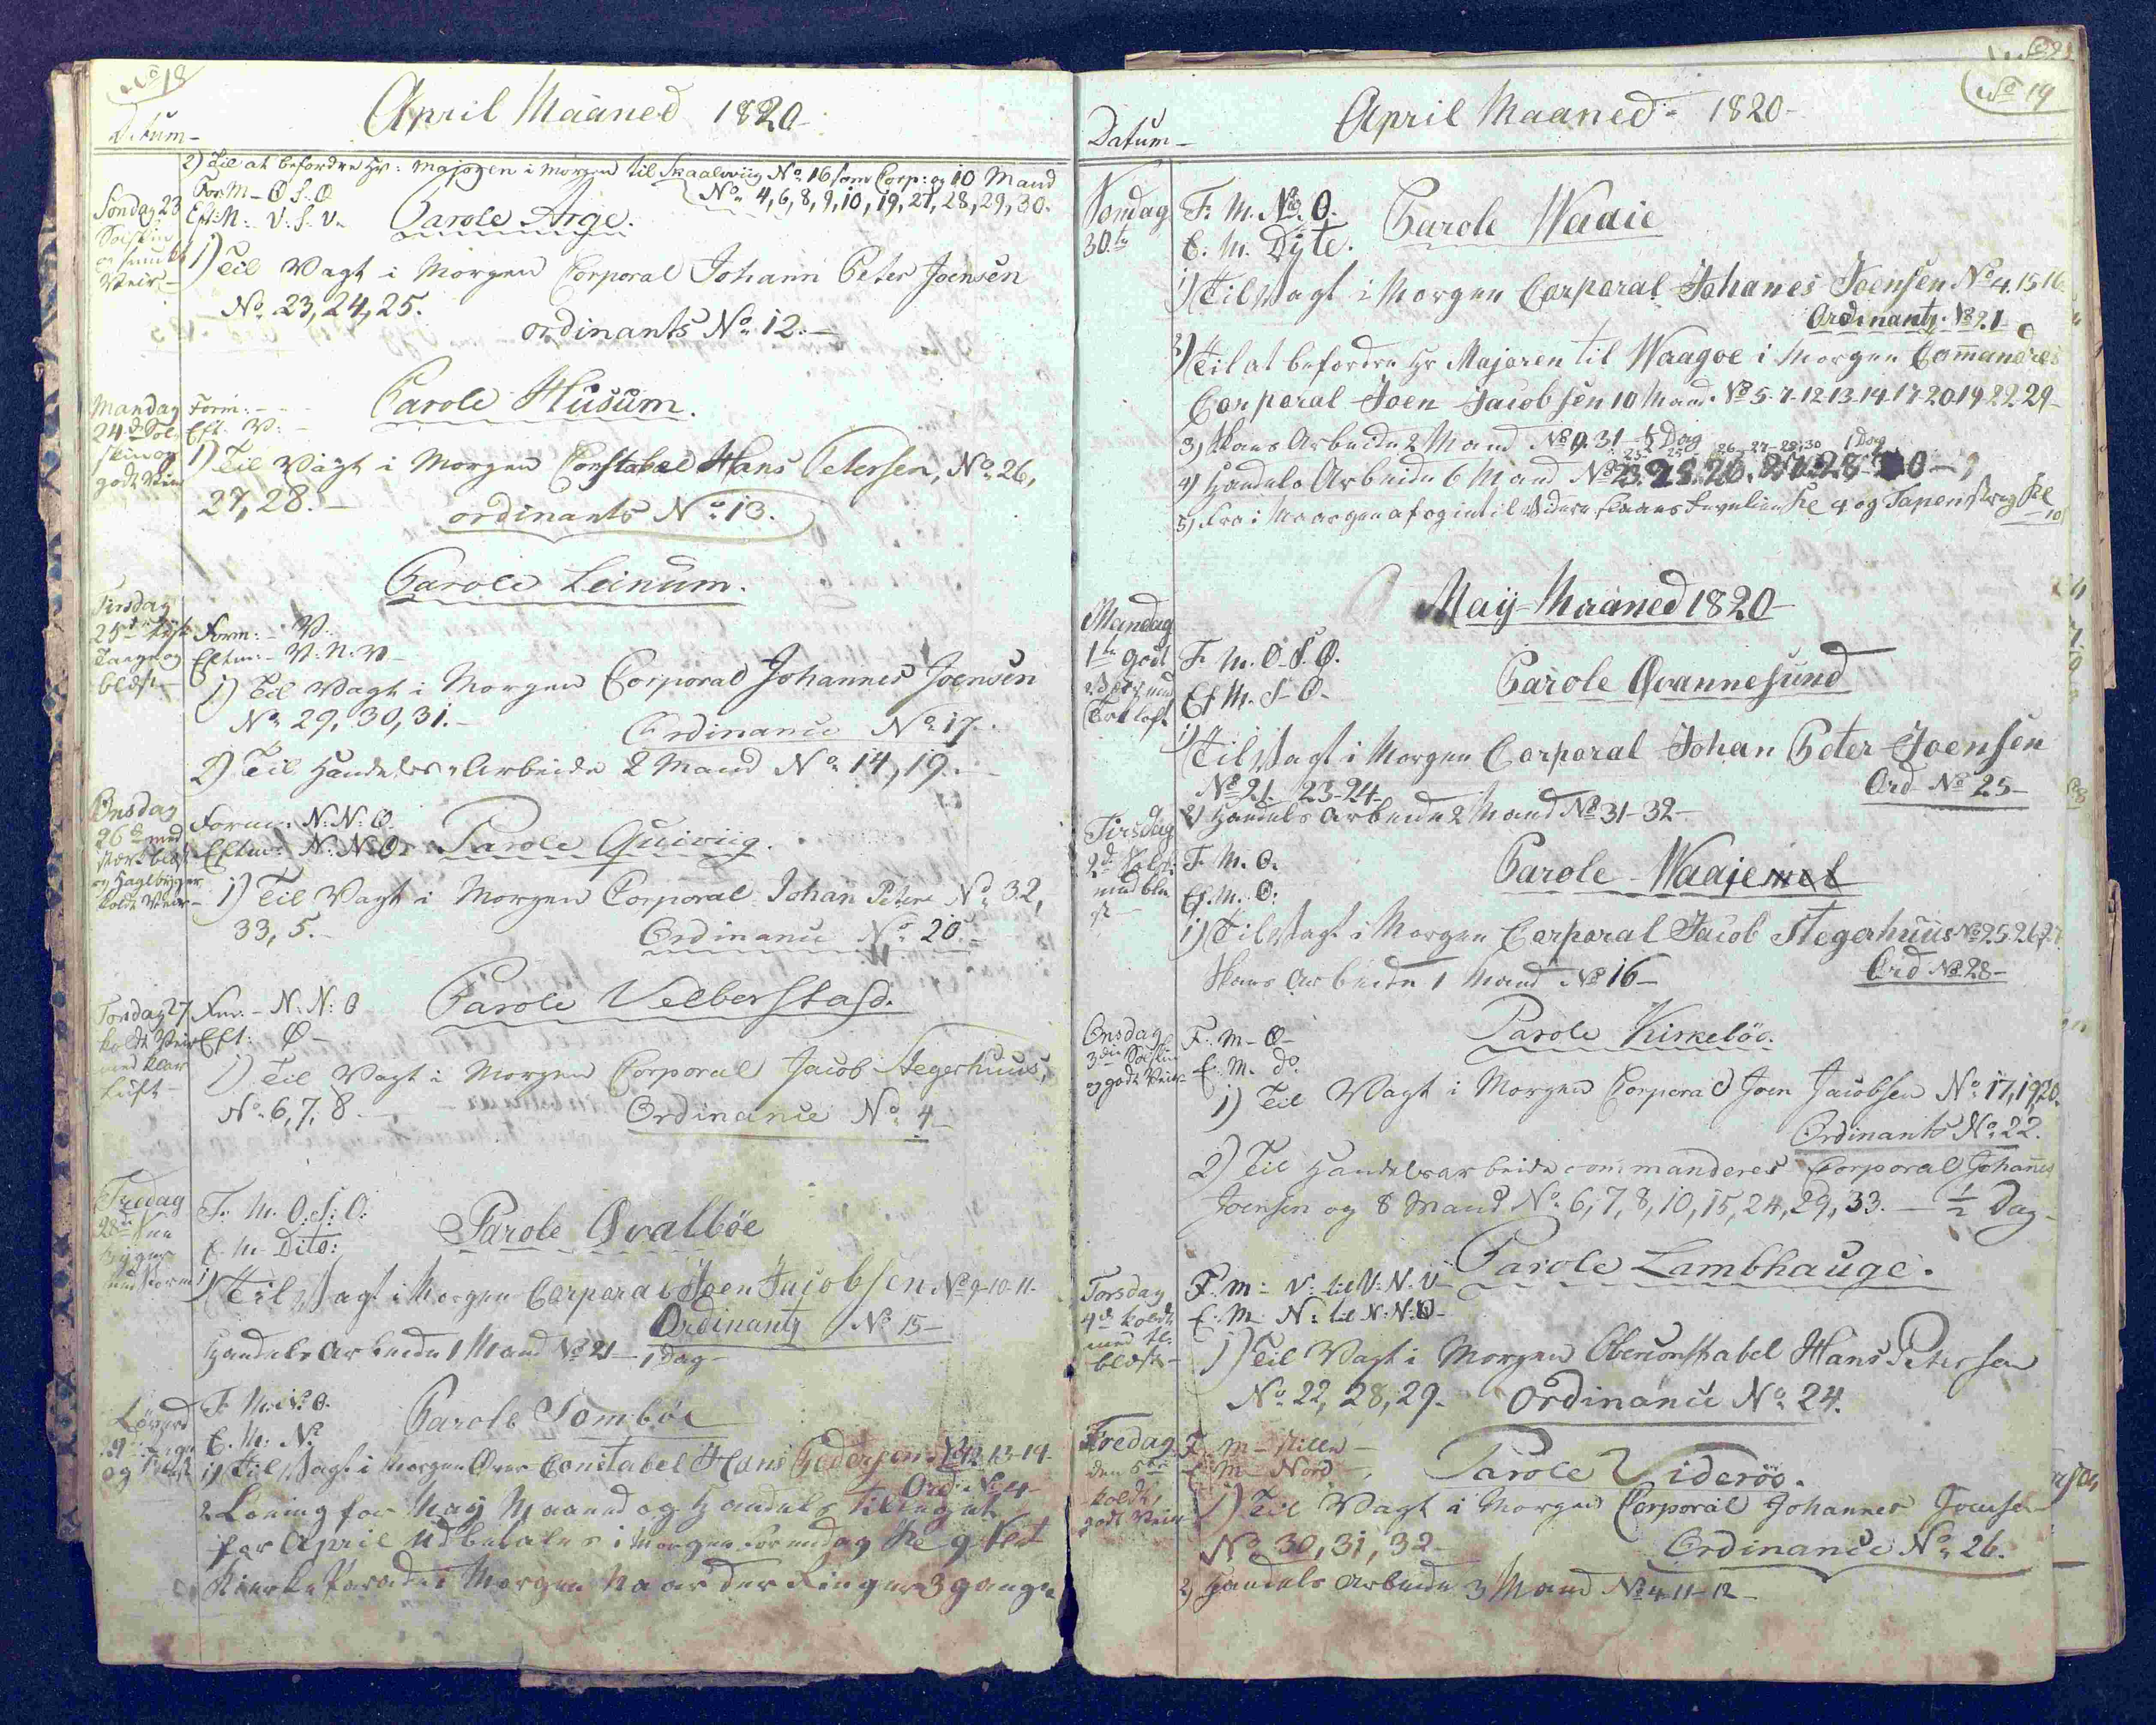 No 18
April Maaned 1820
Datum
2) Til at befordre Hr: Majoren i Morgen til Skaaleviig No 16 som Corp: og 10 Mand
No 4, 6, 8, 9, 10, 19, 27, 28, 29, 30.
Söndag 23
Soiskin
og smukt
Veir
ForM - O S. O
Eft:M: V. S. V.
Parole Arge.
1) Til Vagt i Morgen Corporal Johann Peter Joensen
No 23, 24, 25.
ordinants No 12.
Mandag
24de Sol
skin og
godt Veir
Form:
Eft. V:
Parole Husum.
1) Til Vagt i Morgen Constabel Hans Petersen, No 26,
27, 28.
ordinants No 13.
Parole Leinum.
Tirsdag
25de tyk
Taage og
blæst
Form: V.
Eftm: V. N. V
1) Til Vagt i Morgen Corporal Johannes Joensen
No 29, 30, 31.
Ordinance No 17.
2) Til Handelens Arbeide 2 Mand No 14, 19.
Onsdag
26de med
stærk blæst
og Haglbyger
koldt Veir
Form: N: N: O.
Eftm: N: N: O:
Parole Quiviig.
1) Til Vagt i Morgen Corporal Johan Peter No 32,
33, 5.
Ordinance No 20.
Torsdag 27
koldt Veir
med klar
Luft
For: N: N: O
Eft: O
Parole Velberstad.
1) Til Vagt i Morgen Corporal Jacob Stegerhuus,
No 6, 7, 8
Ordinance No 4
Fredag
28de
F. M. O. S: O:
E. M. Dito:
Parole Qvalböe
1) Til Vagt i Morgen Corporal Joen Jacobsen No 9-10-11-
Ordinantz No 15
Handels Arbeide 1 Mand No 21 - 1 Dag
F. M. N. O.
E. M: N.
Parole Somböe
1) Til Vagt i Morgen Over Constabel Hans Pedersen No 12-13-14-
Ord: No 4
2 Löning for May Maaned og Handels Tillæget
for April Udbetales i Morgen Formidag Kl 9 Slet
Kierke Parade i Morgen Naar der Ringer 3 gange
No 19
April Maaned 1820
Datum
Söndag
30te
F. M. No. O.
E. M. Dyto.
Parole Waaie
1) Til Vagt i Morgen Corporal Johanes Joensen No 4. 15 16
Ordinantz No 21
2) Til at befordre Hr Majoren til Waagoe i Morgen Comanderes
Corporal Joen Jacobsen 10 Mand No 5-7-12-13-14-17-20-19-22-29
3) Skans Arbeide 2 Mand No 9. 31 - ½ Dag
26-27-28-30 1 Dag
4) Handels Arbeide 6 Mand No
5) Fra i Morgen af og intil Videre slaaes Revelien Kl 4 og Tapenstreg Kl
10
May Maaned 1820
Mandag
1te godt
F. M. O. S. O.
Ef M. S. O
Parole Qvannesund
1) Til Vagt i Morgen Corporal Johan Peter Joensen
No 21. 23-24
Ord No 25
2) Handels Arbeide 2 Mand No 31-32
Tirsdag
2de koldt
med blæ
st
F. M. O.
Ef. M. O.
Parole Waaje
1) Til Vagt i Morgen Corporal Jacob Stegerhuus No 25 26 27
Ord No 28
Skans Arbeide 1 Mand No 16
Onsdag
3die Solskin
og godt Veir
F. M - O
E. M. do
Parole Kirkeböe.
1) Til Vagt i Morgen Corporal Joen Jacobsen No 17, 19, 20.
Ordinants No 22.
2) Til Handelsarbeide commanderes Corporal Johanes
Joensen og 8 Mand No 6, 7, 8, 10, 15, 24, 29, 33. - ½ Dag
Torsdag
4de koldt
med
blæst
F. M: V: til V: N. V
E: M. N: til N: N: O
Parole Lambhauge.
1) Til Vagt i Morgen Oberconstabel Hans Petersen
No 22, 28, 29.
Ordinance No 24.
Fredag
den 5te
koldt,
godt Veir
F. M - Stille
E M - Nord
Parole Videröe.
1) Til Vagt i Morgen Corporal Johannes Joensen
No 30, 31, 32
Ordinance No 26.
2) Handels Arbeide 3 Mand No 4-11-12